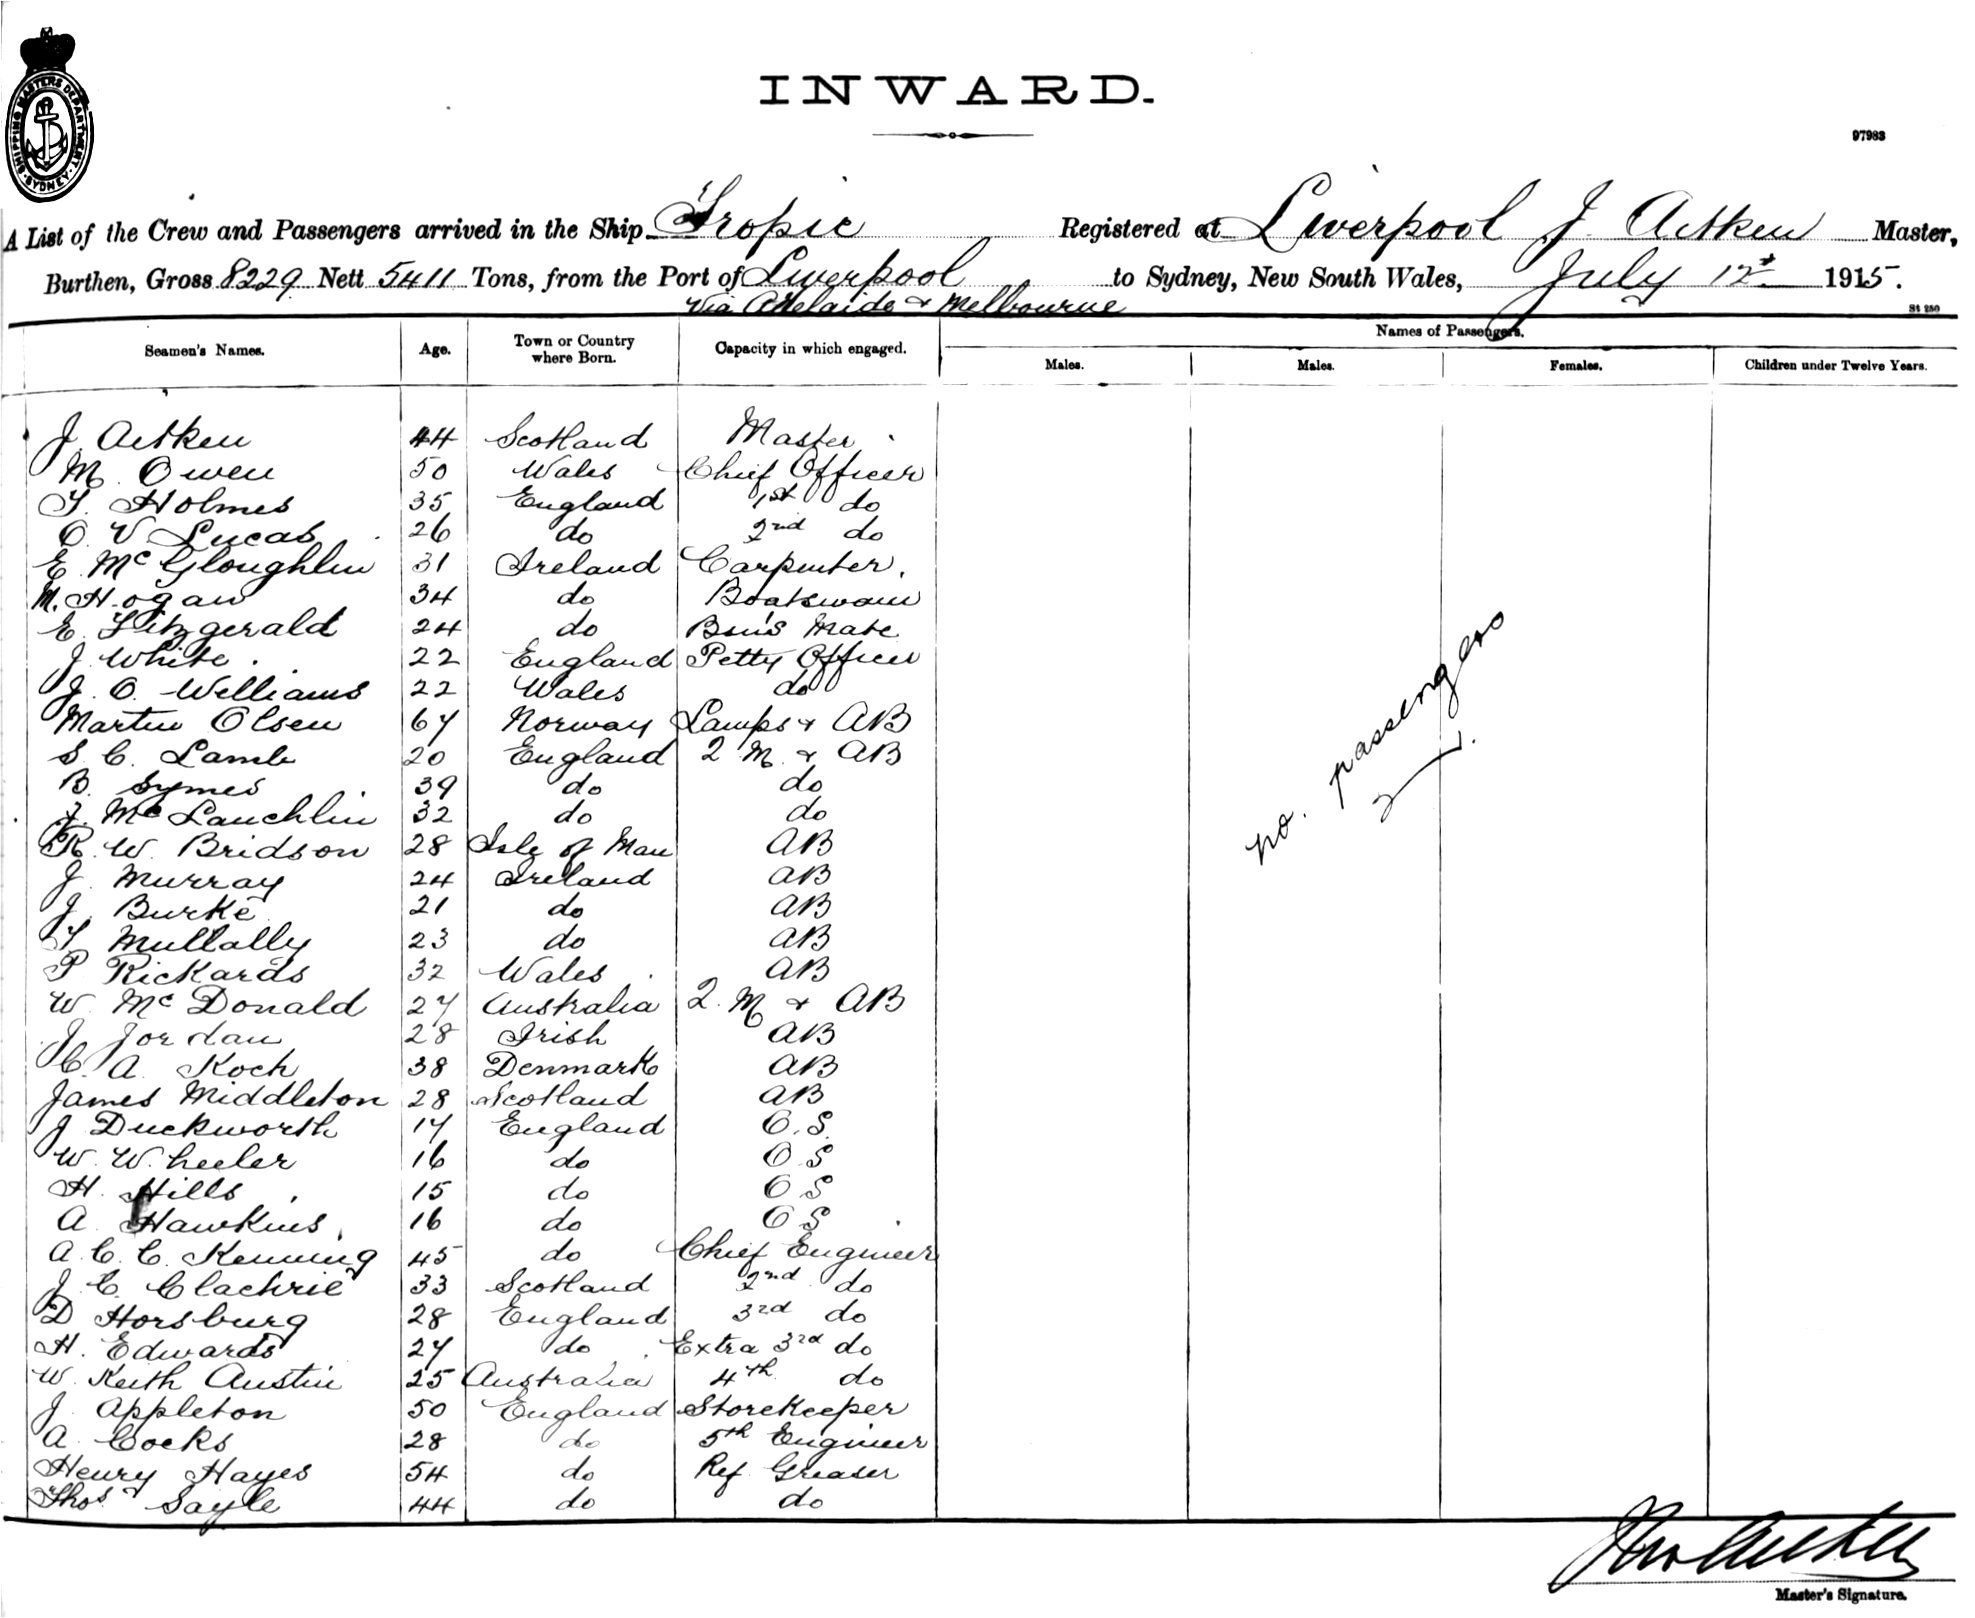 INWARD.
SHIPPING MASTERS DEPARTMENT. SYDNEY.
97983
A List of the Crew and Passengers arrived in the Ship Tropic Registered at Liverpool J. Aitken Master,
Burthen, Gross 8229 Nett 5411 Tons, from the Port of Liverpool to Sydney, New South Wales, July 12th 1915.
via Adelaide & Melbourne
St 250
Seamen's Names. Age. Town or Country where Born. Capacity in which engaged. Names of Passengers.
Males. Males. Females. Children under Twelve Years.
J. Aitken 44 Scotland Master
M. Owen 50 Wales Chief Officer
T. Holmes 35 England 1st do
O V Lucas 26 do 2nd do
E. McGloughlin 31 Ireland Carpenter.
M. Hogan 34 do Boatswain
E. Fitzgerald 24 do Bsn's Mate
J. White 22 England Petty Officer
J. O. Williams 22 Wales do
Martin Olsen 67 Norway Lamps & AB
S. C. Lamb 20 England 2 M. & AB
B. Symes 39 do do
J. McLauchlin 32 do do
R. W. Bridson 28 Isle of Man AB
J. Murray 24 Ireland AB
J. Burke 21 do AB
T Mullally 23 do AB
P Rickards 32 Wales AB
W. McDonald 27 Australia 2. M & AB
J Jordan 28 Irish AB
C. A. Koch 38 Denmark AB
James Middleton 28 Scotland AB
J Duckworth 17 England O.S.
W. Wheeler 16 do O S
H. Hills 15 do O S
A. Hawkins 16 do O S
A. C. C. Kenning 45 do Chief Engineer
J. C. Clachrie 33 Scotland 2nd do
D Horsburg 28 England 3rd do
H. Edwards 27 do Extra 3rd do
W. Keith Austin 25 Australia 4th do
J. Appleton 50 England Storekeeper
A. Cocks 28 do 5th Engineer
Henry Hayes 54 do Ref. Greaser
Thos Sayle 44 do do
no. passengers
Jno Aitken
Master's Signature.